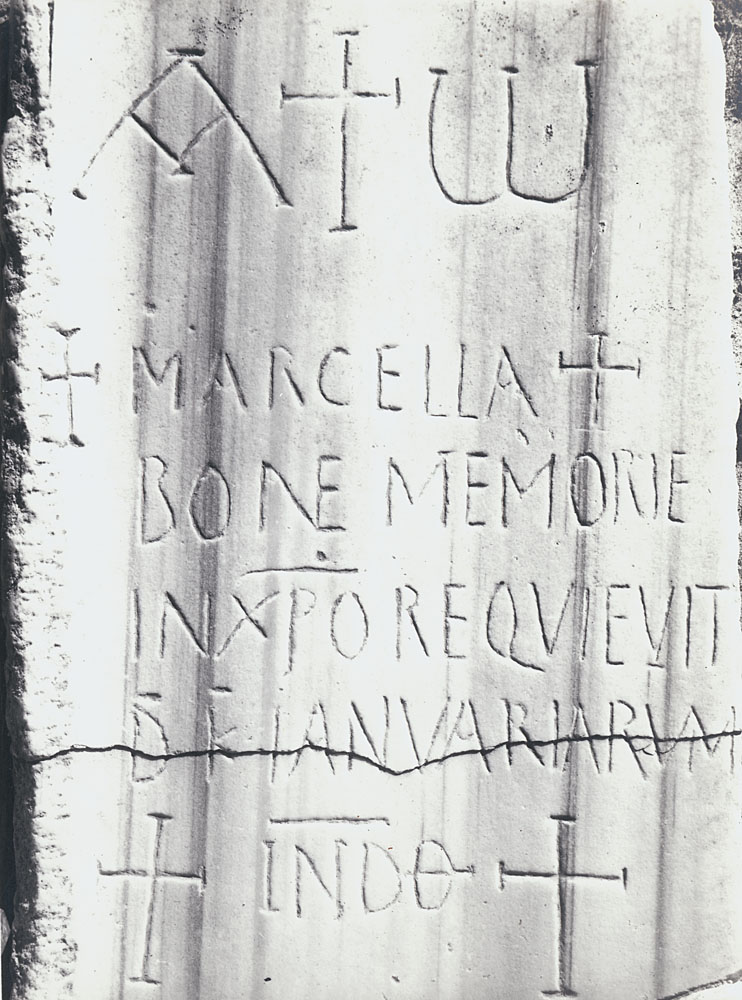 Α + ω
+ MARCELLA +
BONE MEMORIE
IN XPO REQVIEVIT
D K IANVARIARVM
+ IND Θ +